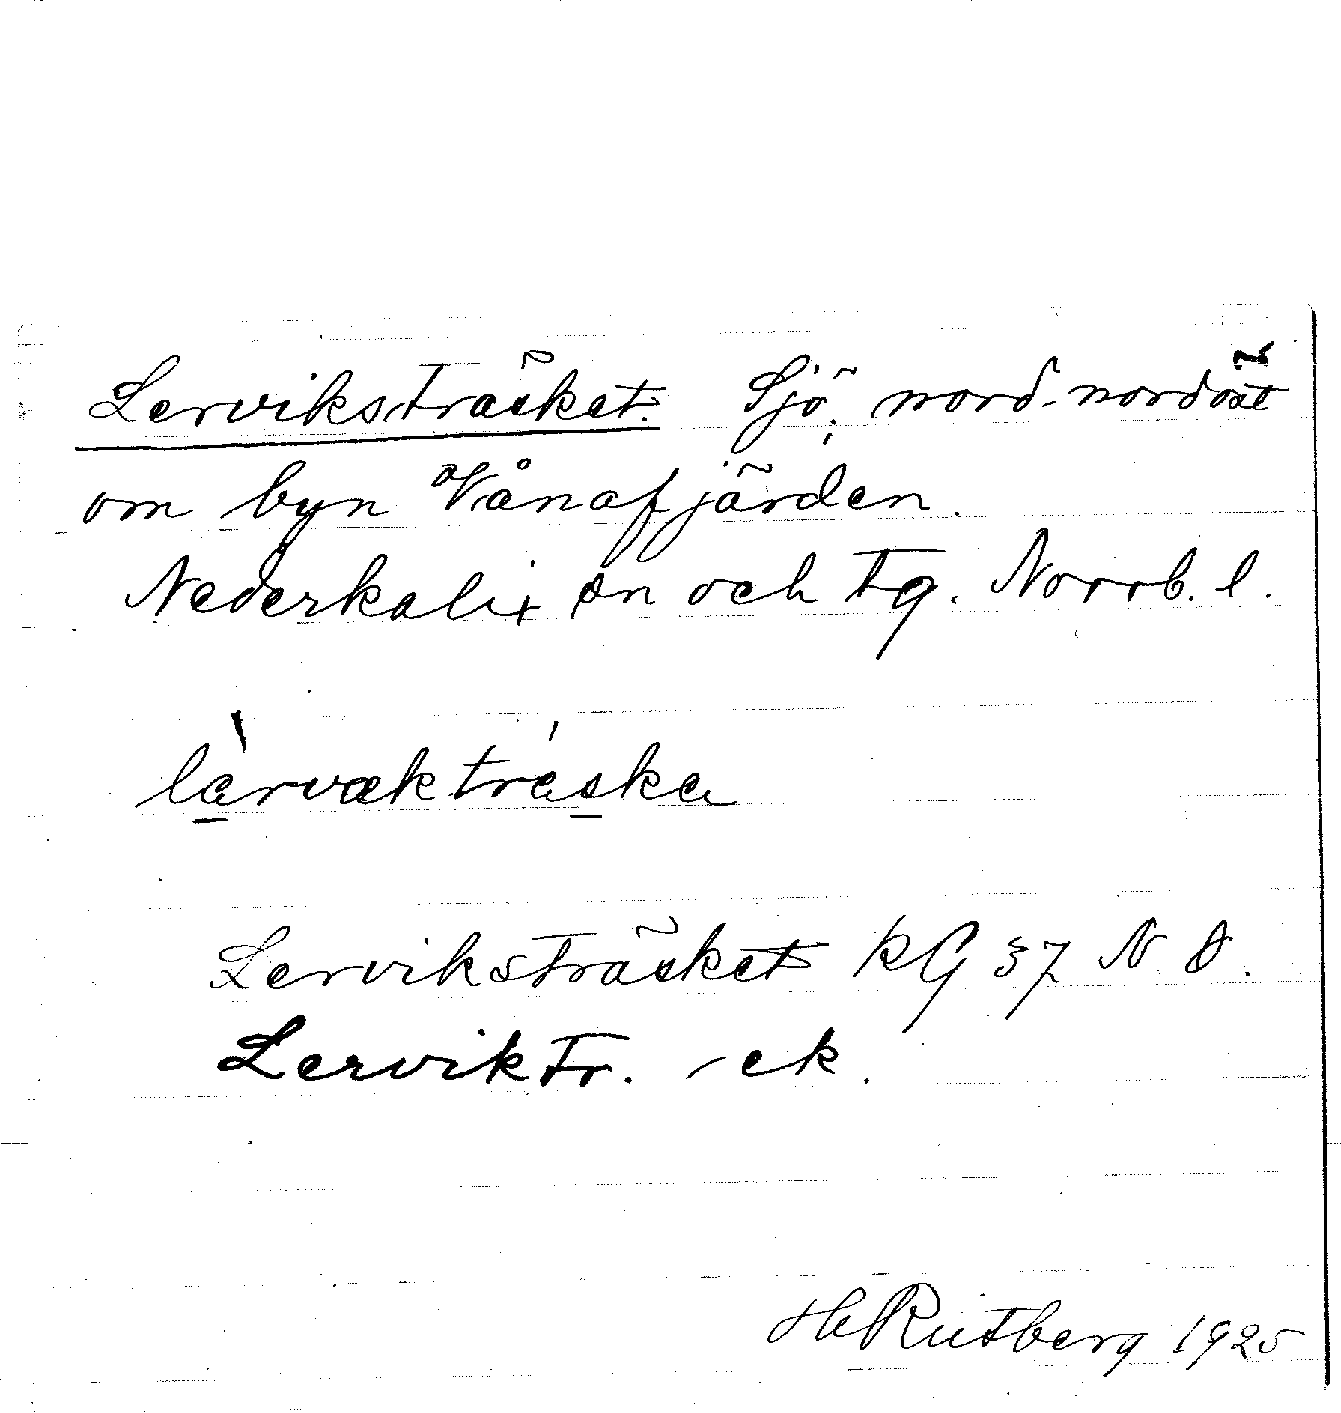 Lerviksträsket. Sjö, nord-nordöst
om byn Vånafjärden.
Nederkalix sn och tg. Norrb. l.
lärvækträska
Lerviksträsket KG 37 N Ö.
Lerviktr. - ek.
H Rutberg 1925